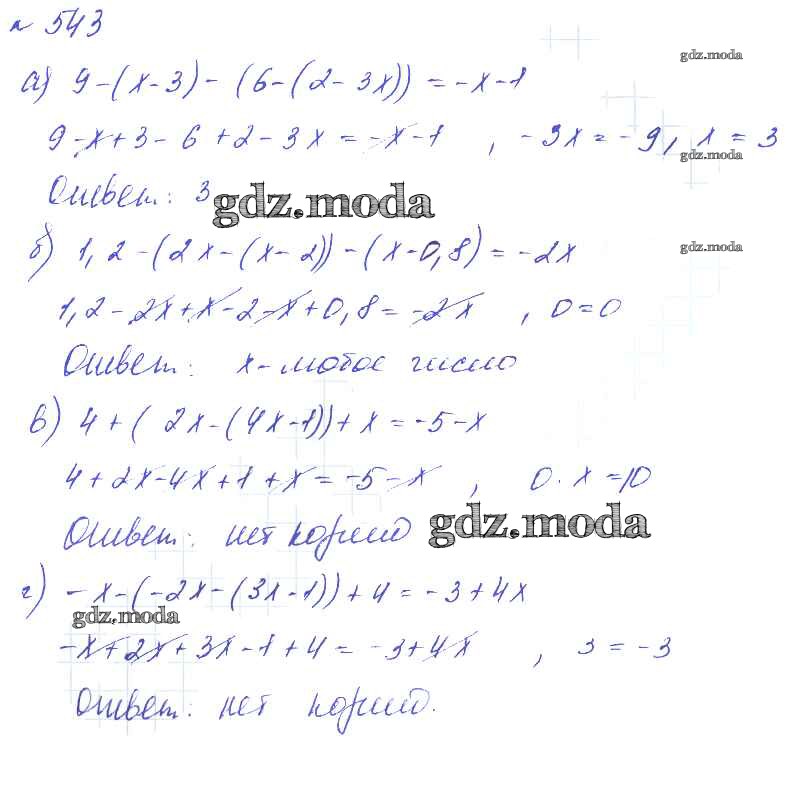 № 543
gdz.moda
а) 9-(x-3)-(6-(2-3x))=-x-1
9-x+3-6+2-3x=-x-1, -3x=-9, x=3
gdz.moda
Ответ: 3
gdz.moda
б) 1,2-(2x-(x-2))-(x-0,8)=-2x
gdz.moda
1,2-2x+x-2-x+0,8=-2x, 0=0
Ответ: x-любое число
в) 4+(2x-(4x-1))+x=-5-x
4+2x-4x+1+x=-5-x, 0·x=10
Ответ: нет корней
gdz.moda
г) -x-(-2x-(3x-1))+4=-3+4x
gdz.moda
-x+2x+3x-1+4=-3+4x, 3=-3
Ответ: нет корней.